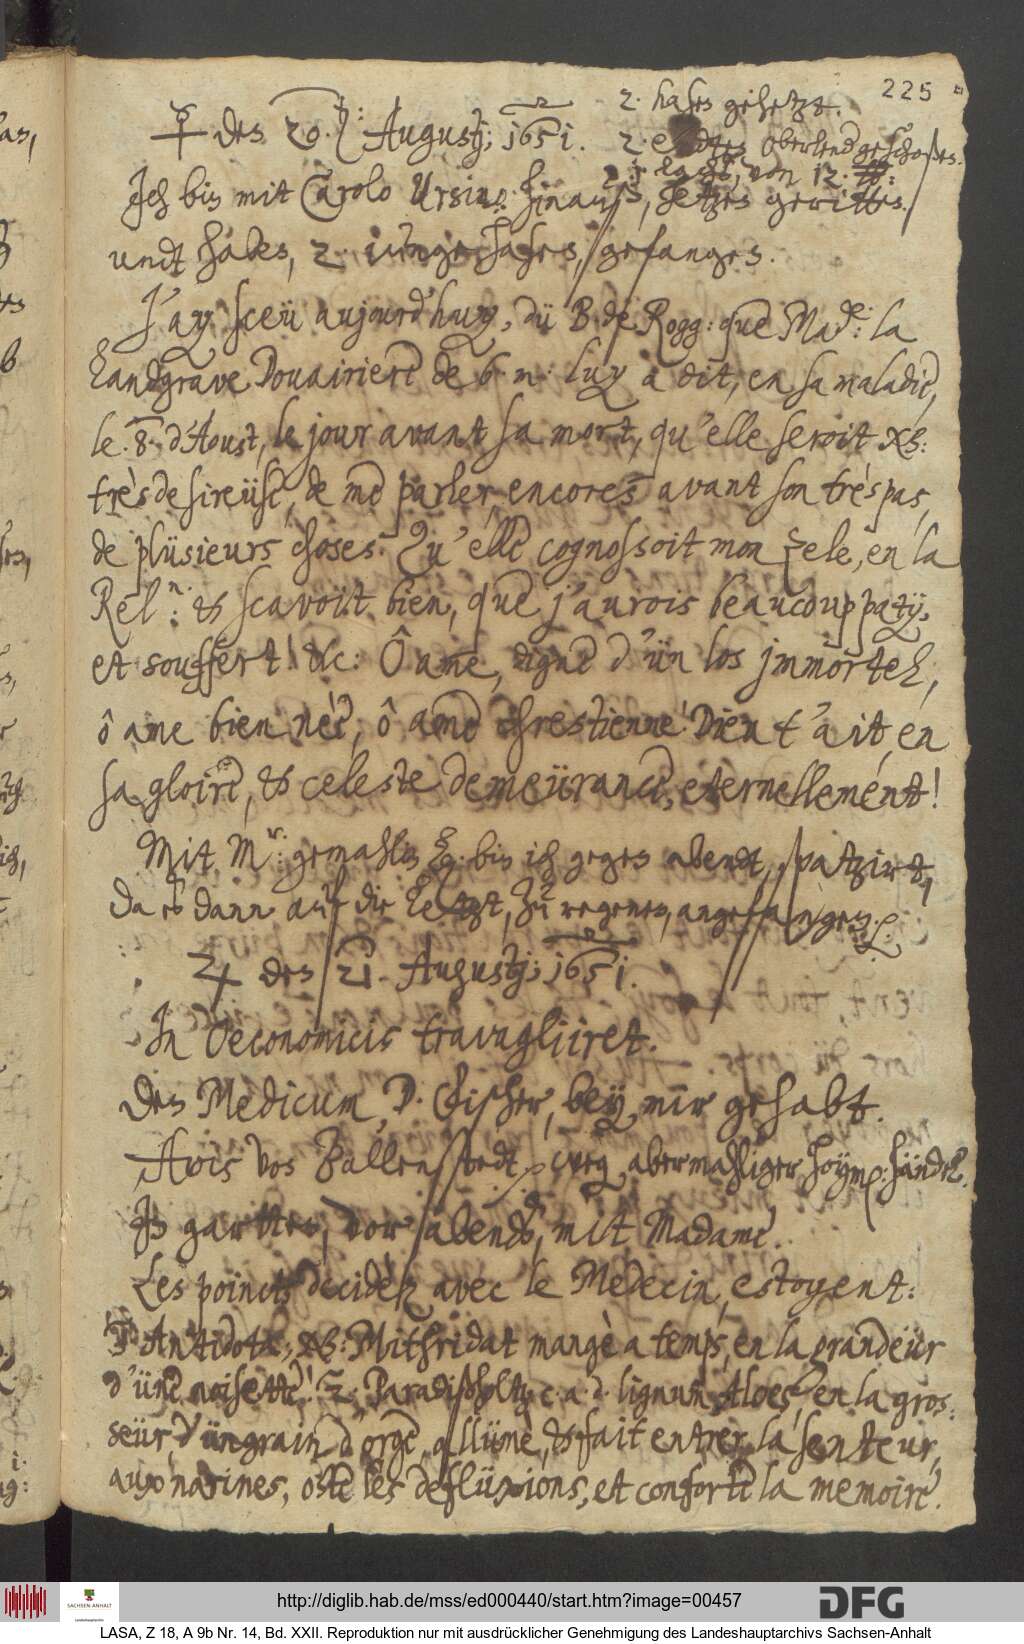 225
2. hasen gehetzt.
☿ den 20. Augustj; 1651.
2. Oberlendt geschoßen.
lachß, von 12. ℔:
Ich bin mit Carolo Ursino hinauß, hetzen geritten.
undt haben, 2 iunge hasen, gefangen.
J'ay sceü aujourd'huy, dü B. de Rogg: que Made: la
Landgrave Douairiere de luy a dit, en sa maladie,
le 8. d'Aoust, le jour avant sa mort, qu'elle seroit NB:
très desireüse, de me parler, encores avant son tréspas,
de plüsieurs choses. Qu'elle cognossoit mon Zele, en la
Reln: & scavoit bien, que j'aurois beaucoup paty,
et souffert! &c: Ô ame, digne d'ün los jmmortel,
ô ame bien neè, ô ame chrestienne! Dieu t'ait, en
sa gloire, & celeste demeürance, eternellement!
Mit Mr: gemahlin L. bin ich gegen abendt, spatzirt,
da es dann auf die Letzt, zu regenen, angefangen.
♃ den 21. Augustj; 1651.
In Oeconomicis travagliiret.
Den Medicum D. Fischer, bey mir gehabt.
Avis von Ballenstedt, weg abermahliger Hoymß: händel.
In gartten, vor abends, mit Madame.
Les poincts decidèz avec le Medecin, estoyent:
1. Antidota, NB: Mithridat mangè a temps, en la grandeür
d'üne noisette! 2. Paradißholtz c. a. d. lignum Aloes, en la gros¬
seür d'ün grain d'orge, allümè, & fait entrer la senteur,
aux narines, oste les deflüxions, et conforte la memoire.
http://diglib.hab.de/mss/ed000440/start.htm?image=00457
SACHSEN-ANHALT
DFG
LASA, Z 18, A 9b Nr. 14, Bd. XXII. Reproduktion nur mit ausdrücklicher Genehmigung des Landeshauptarchivs Sachsen-Anhalt